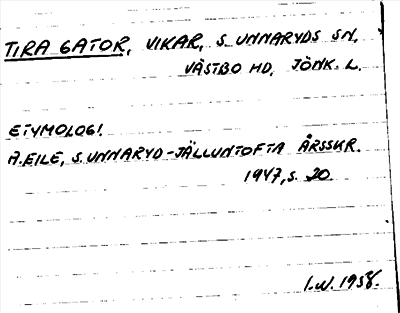 TIRA GATOR, VIKAR, S. UNNARYDS SN,
VÄSTBO HD, JÖNK. L.
ETYMOLOGI.
A. EILE, S. UNNARYD-JÄLLUNTOFTA ÅRSSKR.
1947, S. 20.
I.W. 1958.